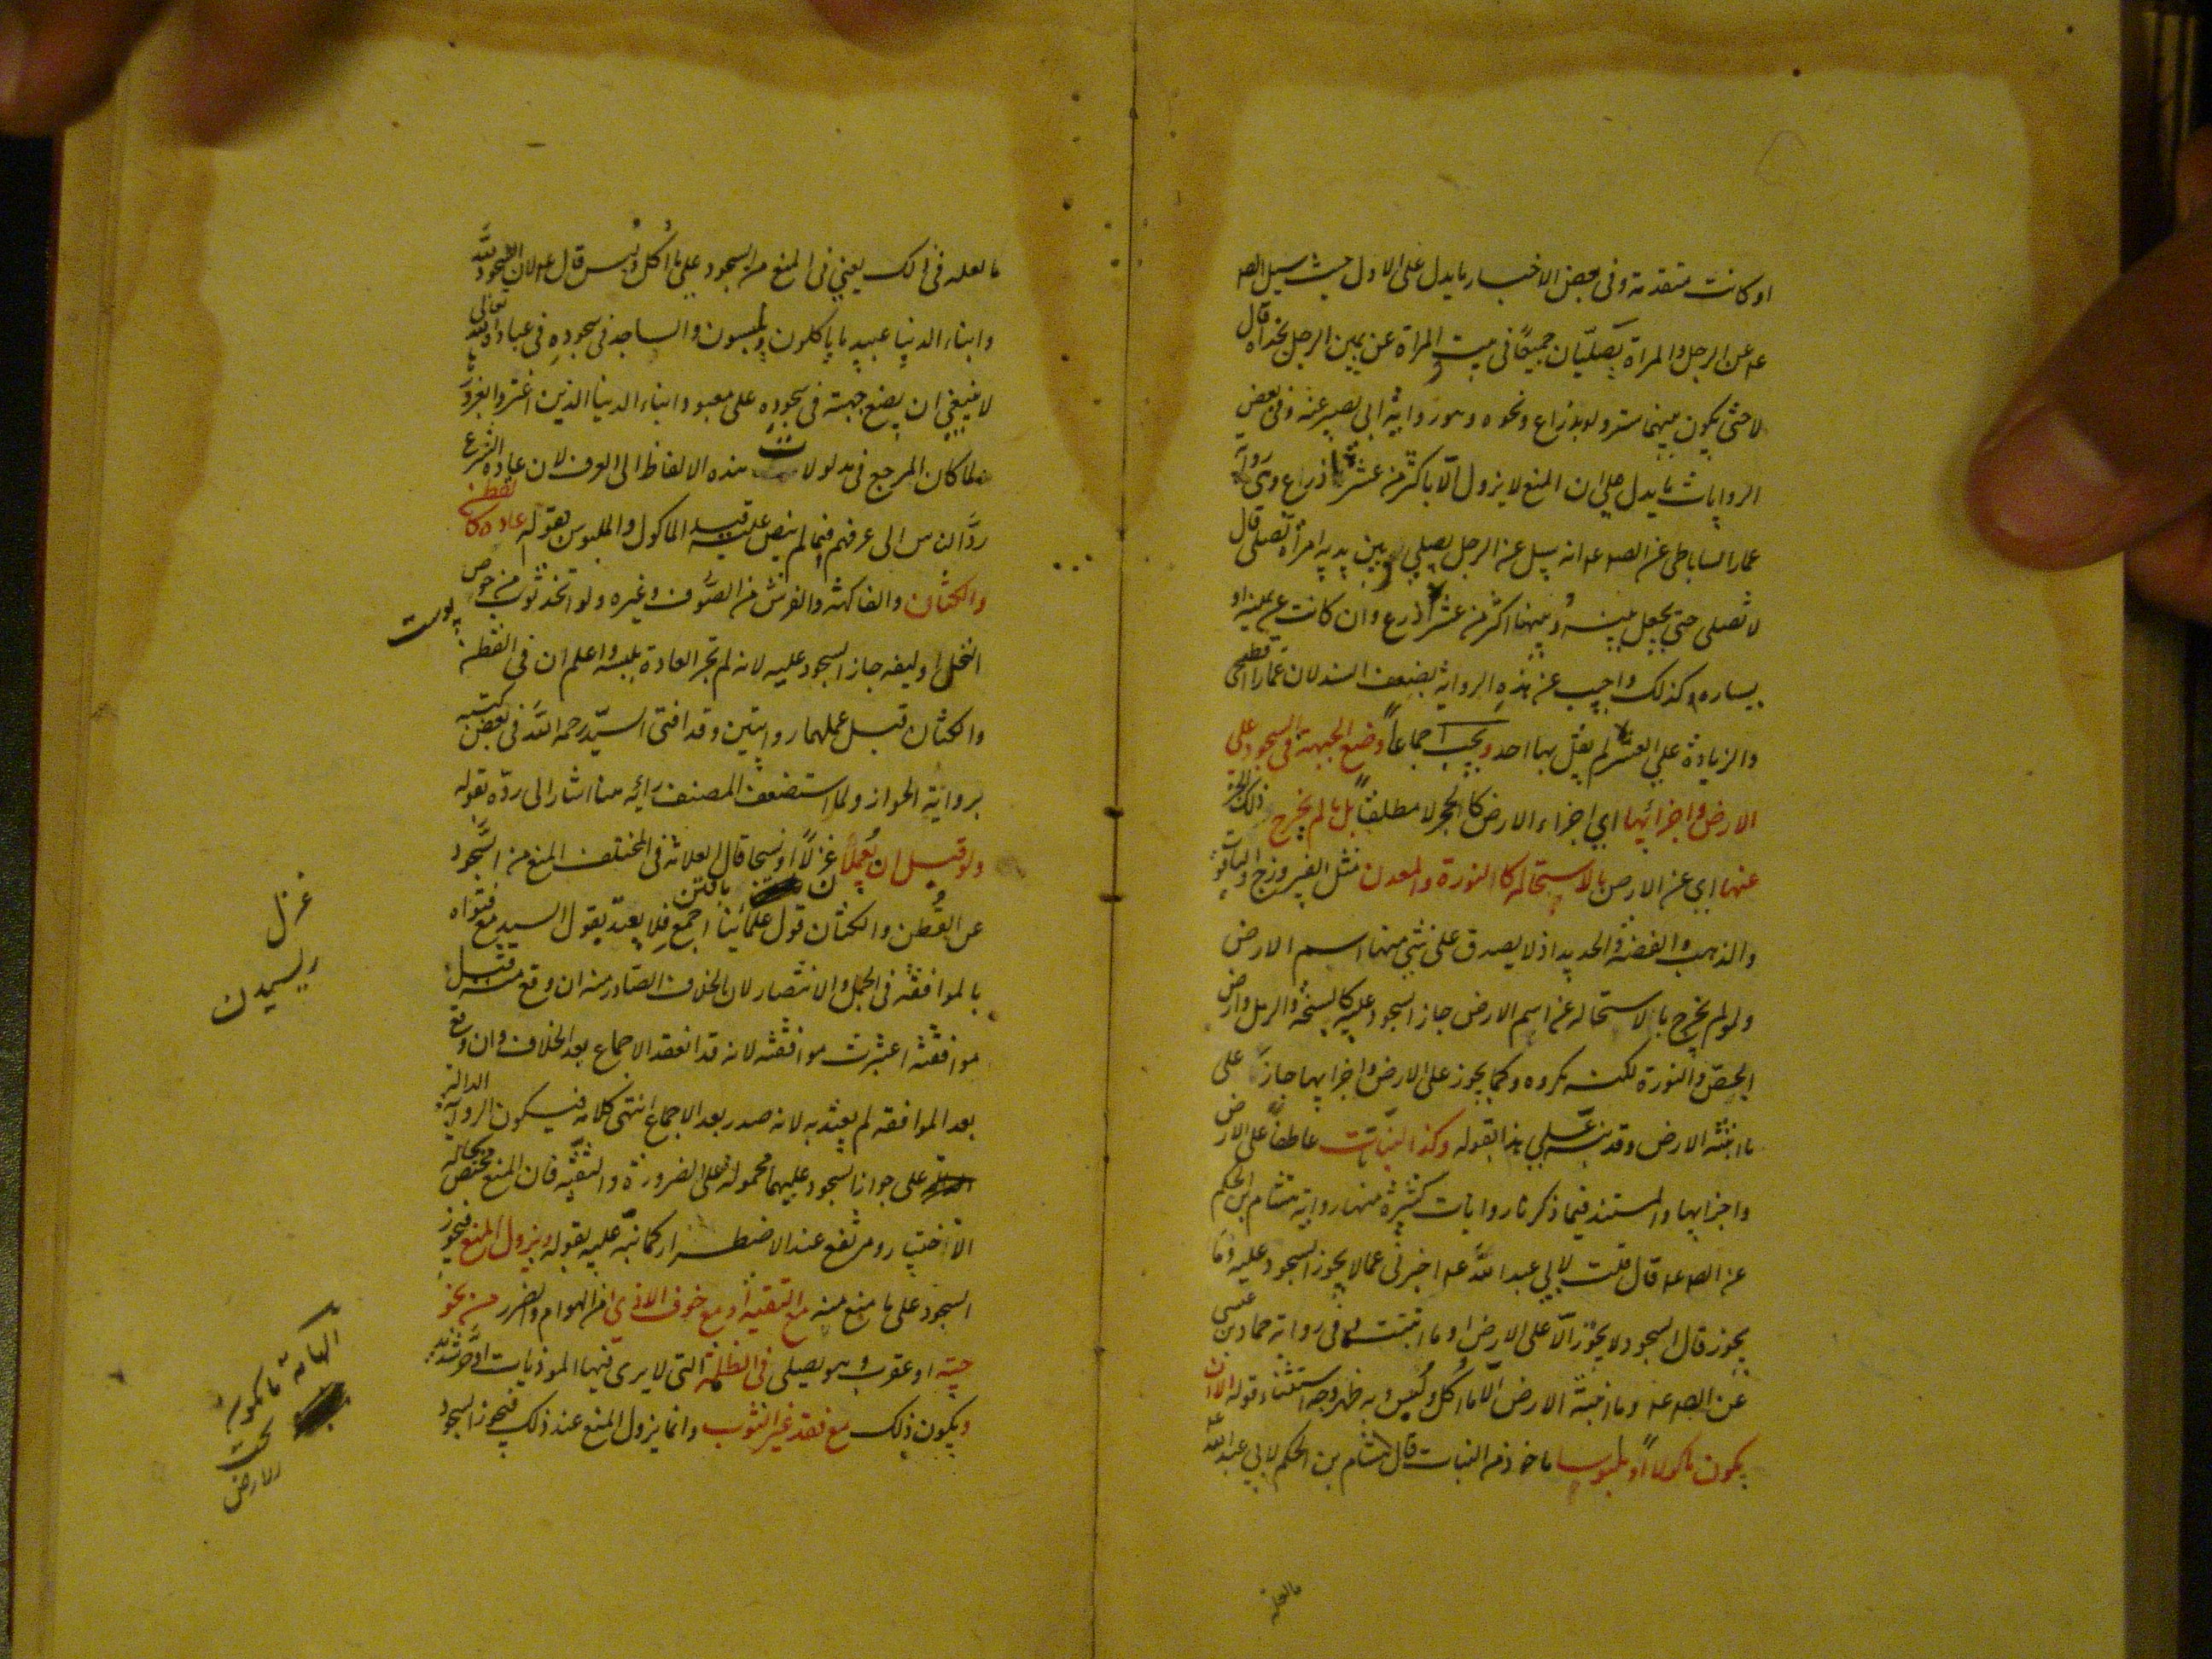 او كانت متقدمة وفى بعض الاخبار ما يدل على الاول حيث سئل الصه
عه عن الرجل والمراة يصليان جميعًا فى بيت المراة عن يمين الرجل بحذاه قال
لا حتى يكون بينهما ستر ولو بذراع ونحوه وهو رواية ابى بصير عنه وفى بعض
الروايات ما يدل على ان المنع لا يزول الّا باكثر من عشرة اذرع وهى رواية
عمار الساباطى عن الصه عه انه سئل عن الرجل يصلى وبين يديه امرأة تصلى قال
لا تصلى حتى يجعل بينه وبينها اكثر من عشر اذرع وان كانت عن يمينه او
يساره وكذلك واجيب عن هذه الرواية بضعف السند لان عمارا فطحى
والزيادة على العشر لم يقل بها احد ويجب اجماعاً وضع الجبهة فى السجود على
الارض واجزائها اى اجزاء الارض كالحجر لا مطلقاً بل ما لم يخرج ذلك الجزء
عنها اى عن الارض بالاستحالة كالنورة والمعدن مثل الفيروزج والياقوت
والذهب والفضة والحديد اذ لا يصدق على شئ منها اسم الارض
ولو لم يخرج بالاستحالة عن اسم الارض جاز السجود عليه كالسبخة والرمل وارض
الجص والنورة لكنه مكروه وكما يجوز على الارض واجزايها جاز على
ما انبتته الارض وقد نبّه على هذا بقوله وكذا النبات عاطفاً على الارض
واجزايها والمستند فيما ذكرنا روايات كثيرة منها رواية هشام بن الحكم
عن الصه عه قال قلت لابى عبد الله عه اخبرنى عما لا يجوز السجود عليه وما
يجوز قال السجود لا يجوز الّا على الارض او ما انبتت وفى رواية حماد بن عيسى
عن الصه عه وما انبتته الارض الّا ما اُكل ولُبس وبه ظهر وجه استثناء قوله الا ان
يكون ماكولاً او ملبوسا ماخوذ من النبات قال هشام بن الحكم لابى عبد الله عه
ما العلة
ما لعله فى ذلك يعنى فى المنع من السجود على ما اُكل ولُبس قال عه لان السجود لله
وابناء الدنيا عبيد ما ياكلون ويلبسون والساجد فى سجوده فى عبادة الله تعالى
لا ينبغى ان يضع جبهته فى سجوده على معبود ابناء الدنيا الذين اغتروا بغرور
ها
ولما كان المرجع فى مدلولات هذه الالفاظ الى العرف لان عادة الشرع
ردّ الناس الى عرفهم فيما لم ينص عليه قيد الماكول والملبوس بقوله عادة كالقطن
والكتان والفاكهة والفرش من الصوف وغيره ولو اتخذ ثوب من خوص
پوست
النخل او ليفه جاز السجود عليه لانه لم تجر العادة بلبسه واعلم ان فى القطن
والكتان قبل عملهما روايتين وقد افتى السيّد رحمه الله فى بعض كتبه
برواية الجواز ولما استضعف المصنف رأيه هنا اشار الى ردّه بقوله
ولو قبل ان يُعملا غزلاً او نسجا قال العلامة فى المختلف المنع من السجود
غزل
ريسيدن
عن القُطن والكتان قول علمائنا اجمع فلا يعتد بقول السيد مع فتواه
بالموافقة فى الجمل والانتصار لان الخلاف الصادر منه ان وقع منه قبل
موافقته اعتبرت موافقته لانه قد انعقد الاجماع بعد الخلاف وان وقع
بعد الموافقة لم يعتد به لانه صدر بعد الاجماع انتهى كلامه فيكون الرواية الدالة
على جواز السجود عليهما محمولة على الضرورة والتقية فان المنع مختص بحالة
الاختيار ومرتفع عند الاضطرار كما نبّه عليه بقوله ويزول المنع فيجوز
السجود على ما منع منه مع التقية او مع خوف الاذى من الهوام والضرر من نحو
حيّة او عقرب وهو يصلى فى الظلمة التى لا يرى فيها الموذيات او حرّ شديد
ويكون ذلك مع فقد غير الثوب وانما يزول المنع عند ذلك فيجوز السجود
تحت
الارض